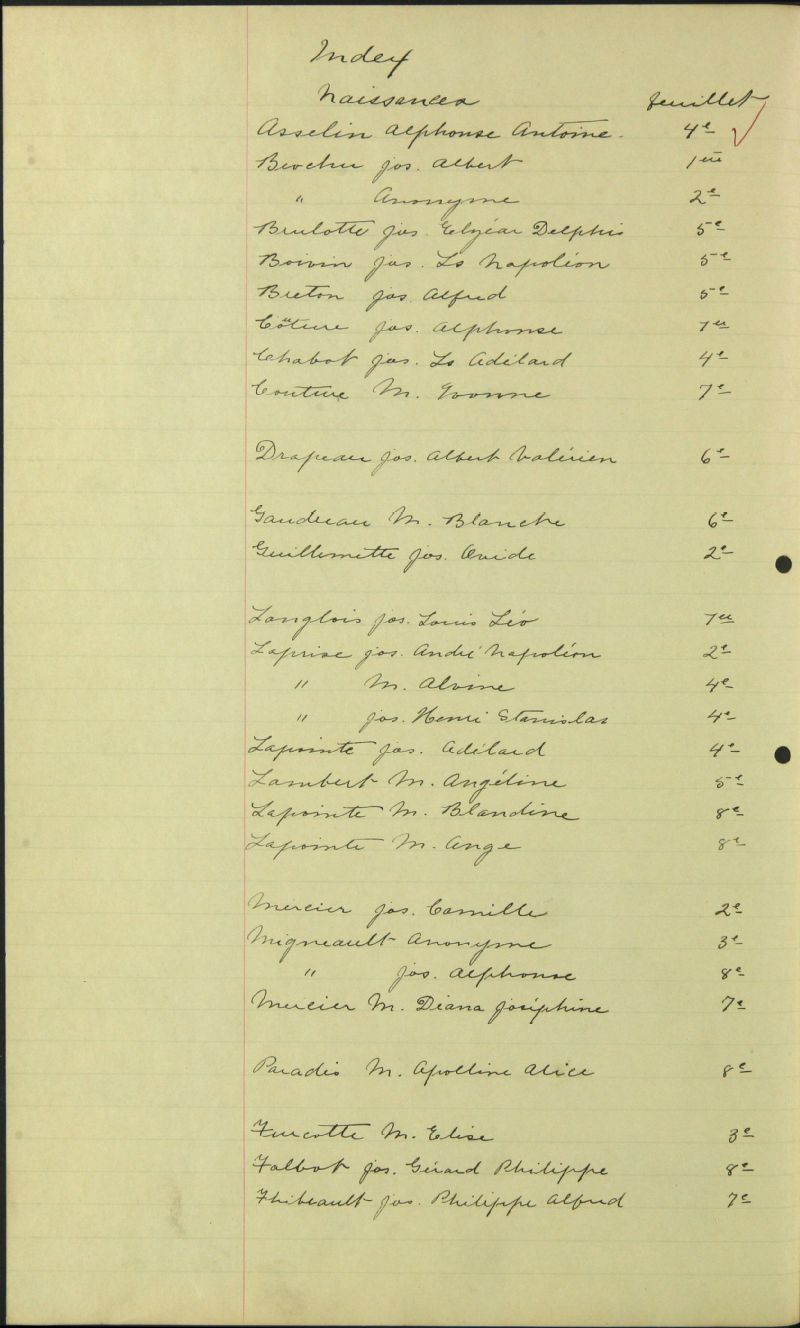 Index
Naissances feuillet
Asselin Alphonse Antoine. 4e
Brochu jos. Albert 1ère
" Anonyme 2e
Brulotte jos. Elzéar Delphis 5e
Boivin jos. Ls Napoléon 5e
Breton jos. Alfred 5e
Côture jos. Alphonse 1er
Chabot jos. Ls Adélard 4e
Couture M. Yvonne 7e
Drapeau jos. Albert Valérien 6e
Gaudreau M. Blanche 6e
Guillemette jos. Ovide 2e
Langlois jos. Louis Léo 1er
Laprise jos. André Napoléon 2e
" M. Alvine 4e
" jos. Henri Stanislas 4e
Lapointe jos. Adélard 4e
Lambert M. Angéline 5e
Lapointe M. Blandine 8e
Lapointe M. Ange 8e
Mercier jos. Camille 2e
Migneault Anonyme 3e
" jos. Alphonse 8e
Mercier M. Diana Joséphine 7e
Paradis M. Apolline Alice 8e
Turcotte M. Elise 3e
Talbot jos. Gérard Philippe 8e
Thibeault jos. Philippe Alfred 7e